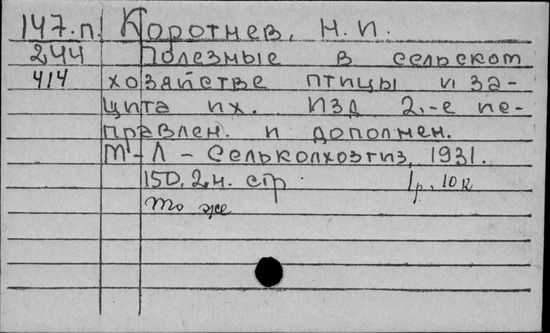 147.п. Коротнев, Н. И.
244 Полезные в сельском
414 хозяйстве птицы и за-
щита их. Изд 2,-е ис-
правлен. и дополнен.
М-Л - Сельколхозгиз, 1931.
150, 2, н. стр. 1р. 10к
То же